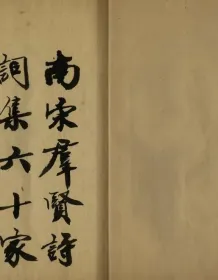 南宋羣賢詩
詞集六十家